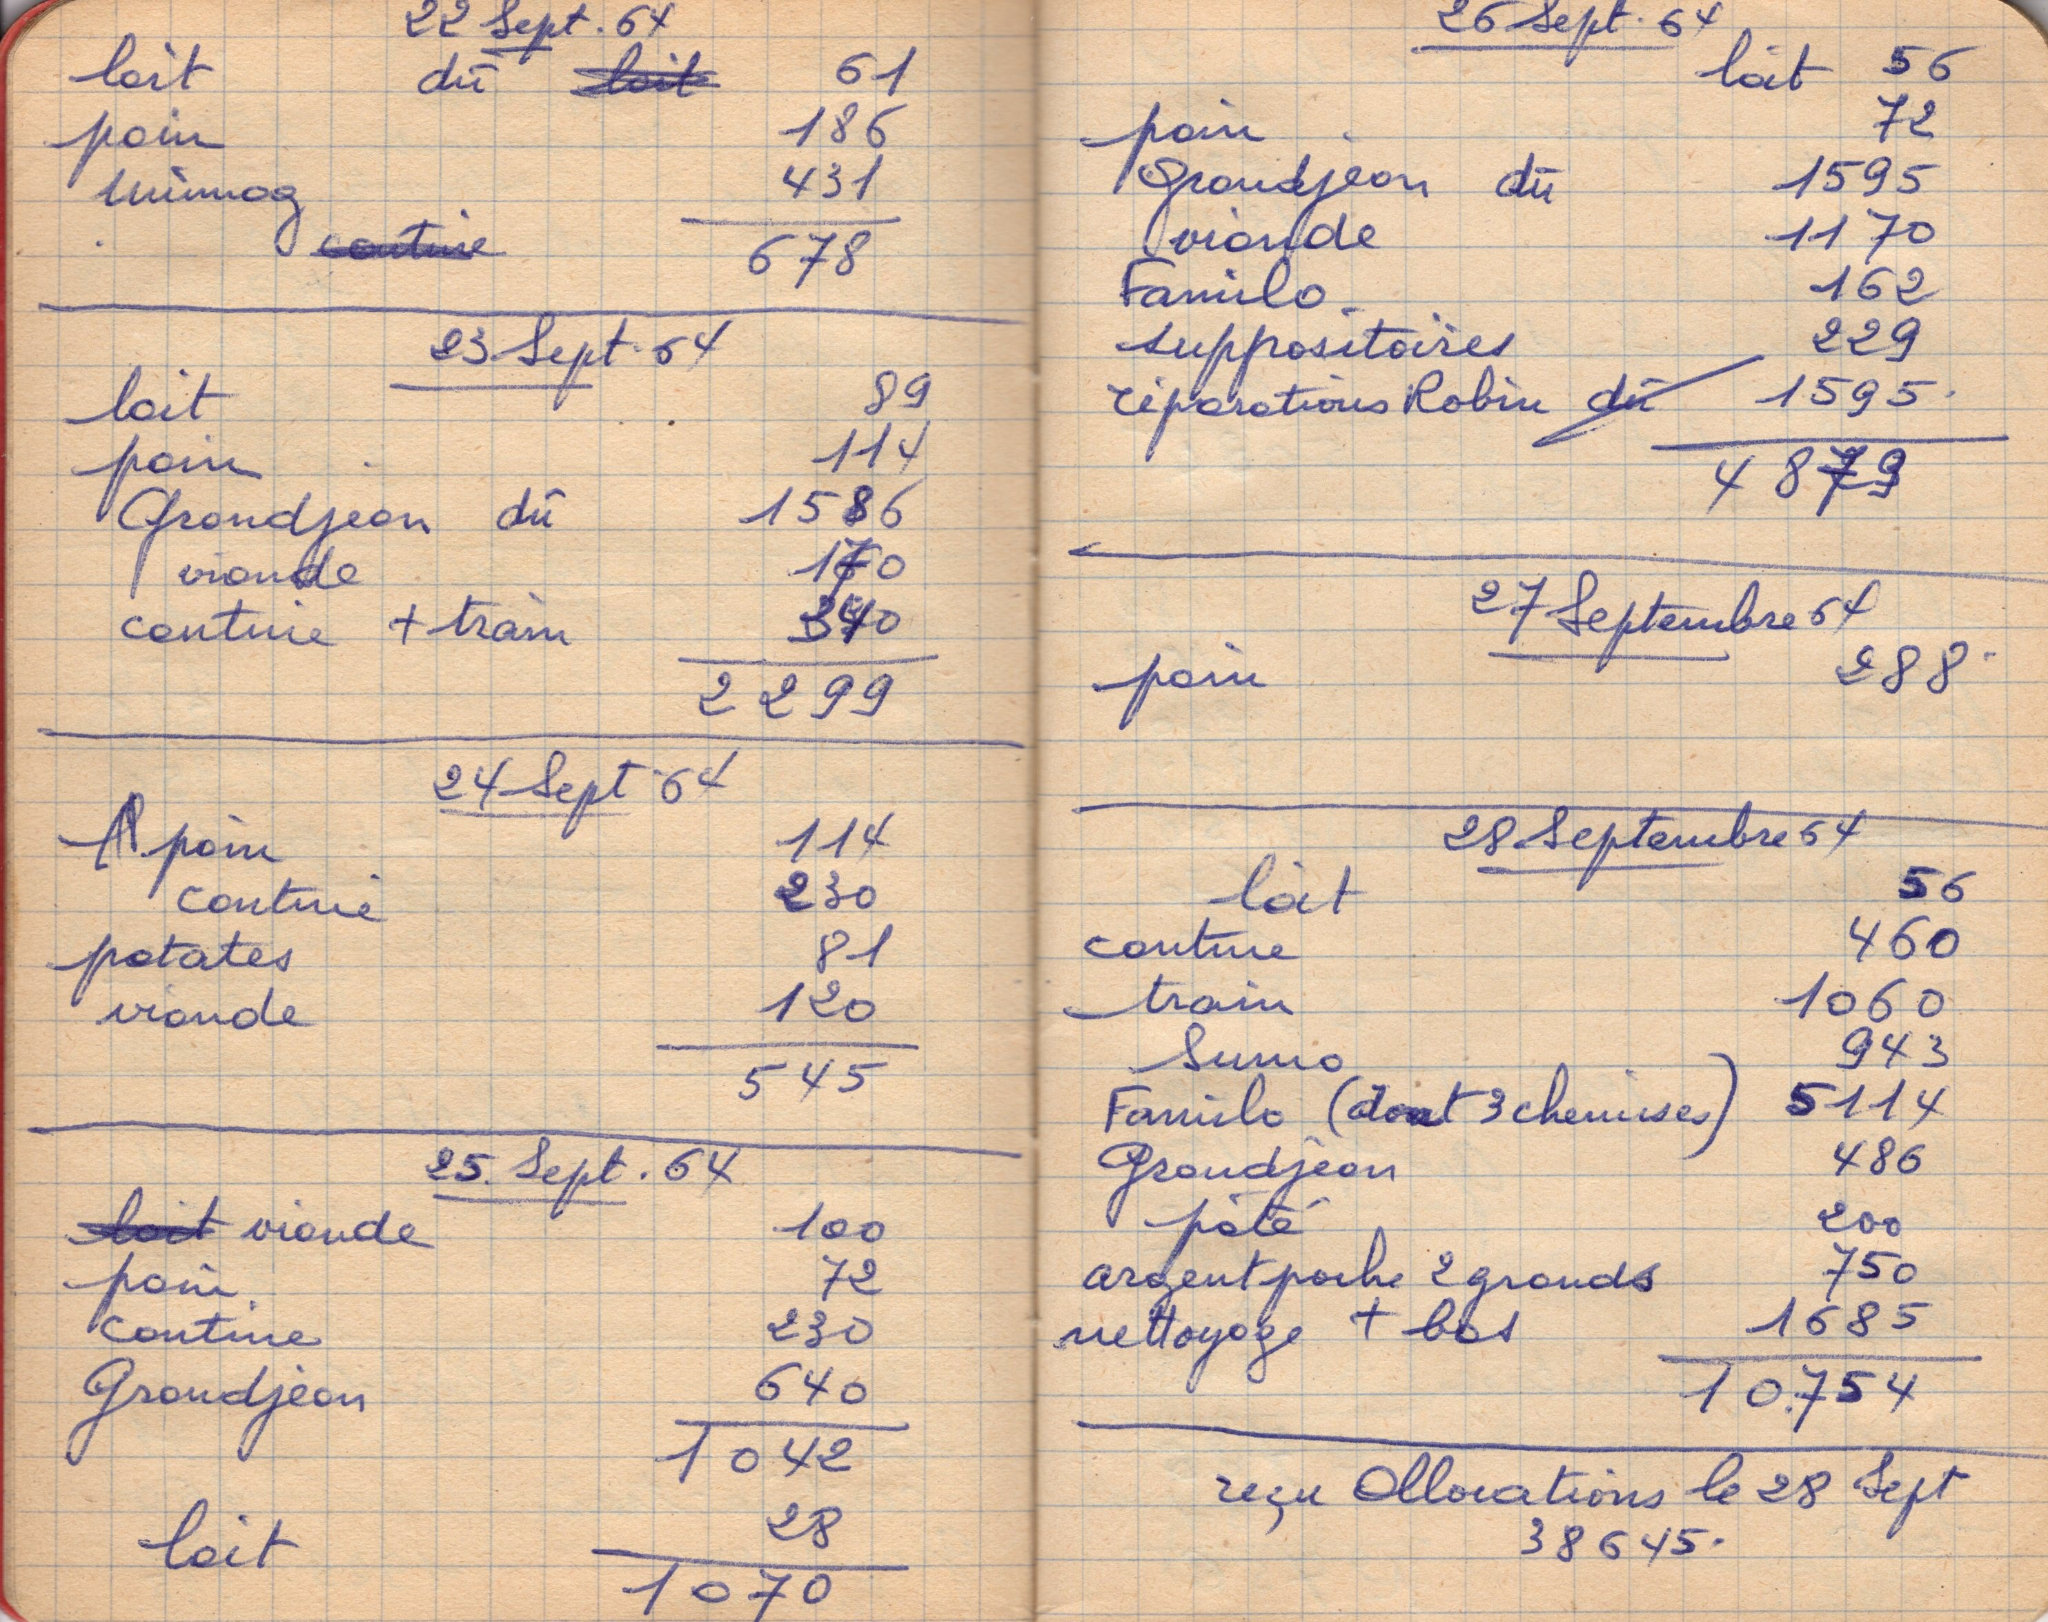 22 Sept. 64
lait dû lait 61
pain 186
431
cantine 678
23 Sept. 64
lait 89
pain 114
Grandjean dû 1586
viande 170
cantine + train 340
2299
24 Sept 64
pain 114
cantine 230
patates 81
viande 120
545
25. Sept. 64
lait viande 100
pain 72
cantine 230
Grandjean 640
1042
lait 28
1070
26 Sept. 64
lait 56
pain 72
Grandjean dû 1595
viande 1170
Familo 162
suppositoires 229
réparations Robin dû 1595.
4879
27 Septembre 64
pain 288
28 Septembre 64
lait 56
cantine 460
train 1060
Suma 943
Familo (dont 3 chemises) 5114
Grandjean 486
pâté 200
argent poche 2 grands 750
nettoyage + bas 1685
10.754
reçu Allocations le 28 Sept
38645.